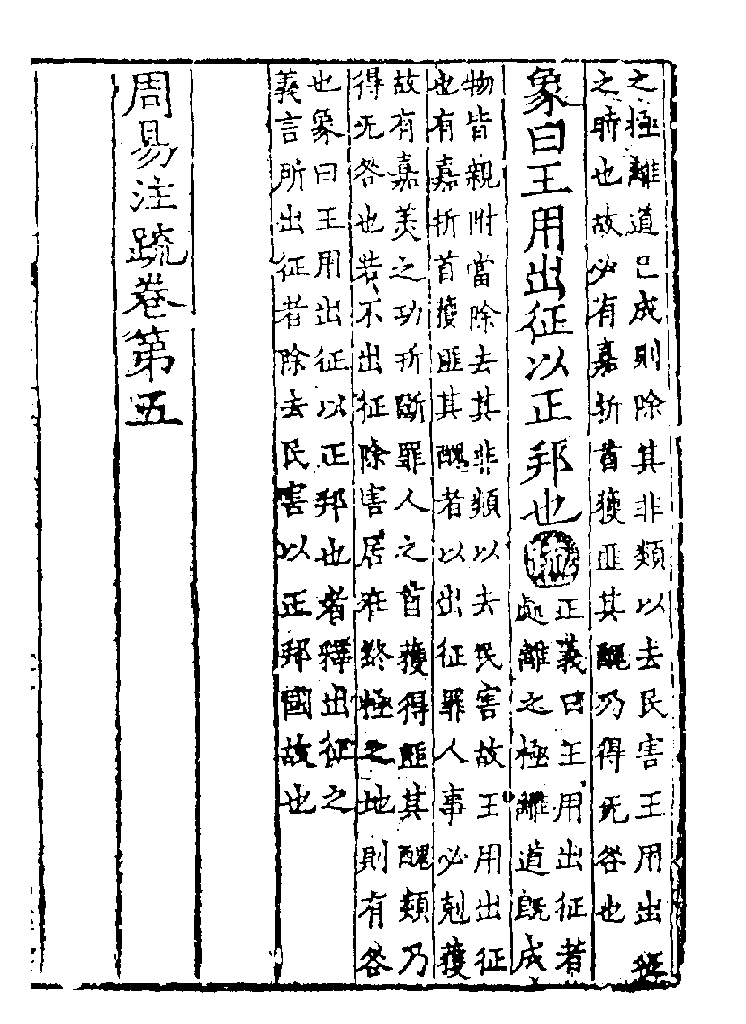 之極離道已成則除其非類以去民害王用出征
之時也故必有嘉折首獲匪其醜乃得无咎也
象曰王用出征以正邦也疏
正義曰王用出征者
處離之極離道既成
物皆親附當除去其非類以去民害故王用出征
也有嘉折首獲匪其醜者以出征罪人事必剋獲
故有嘉美之功所斷罪人之首獲得匪其醜類乃
得无咎也若不出征除害居在終極之地則有咎
也象曰王用出征以正邦也者釋出征之
義言所出征者除去民害以正邦國故也
周易注疏卷第五